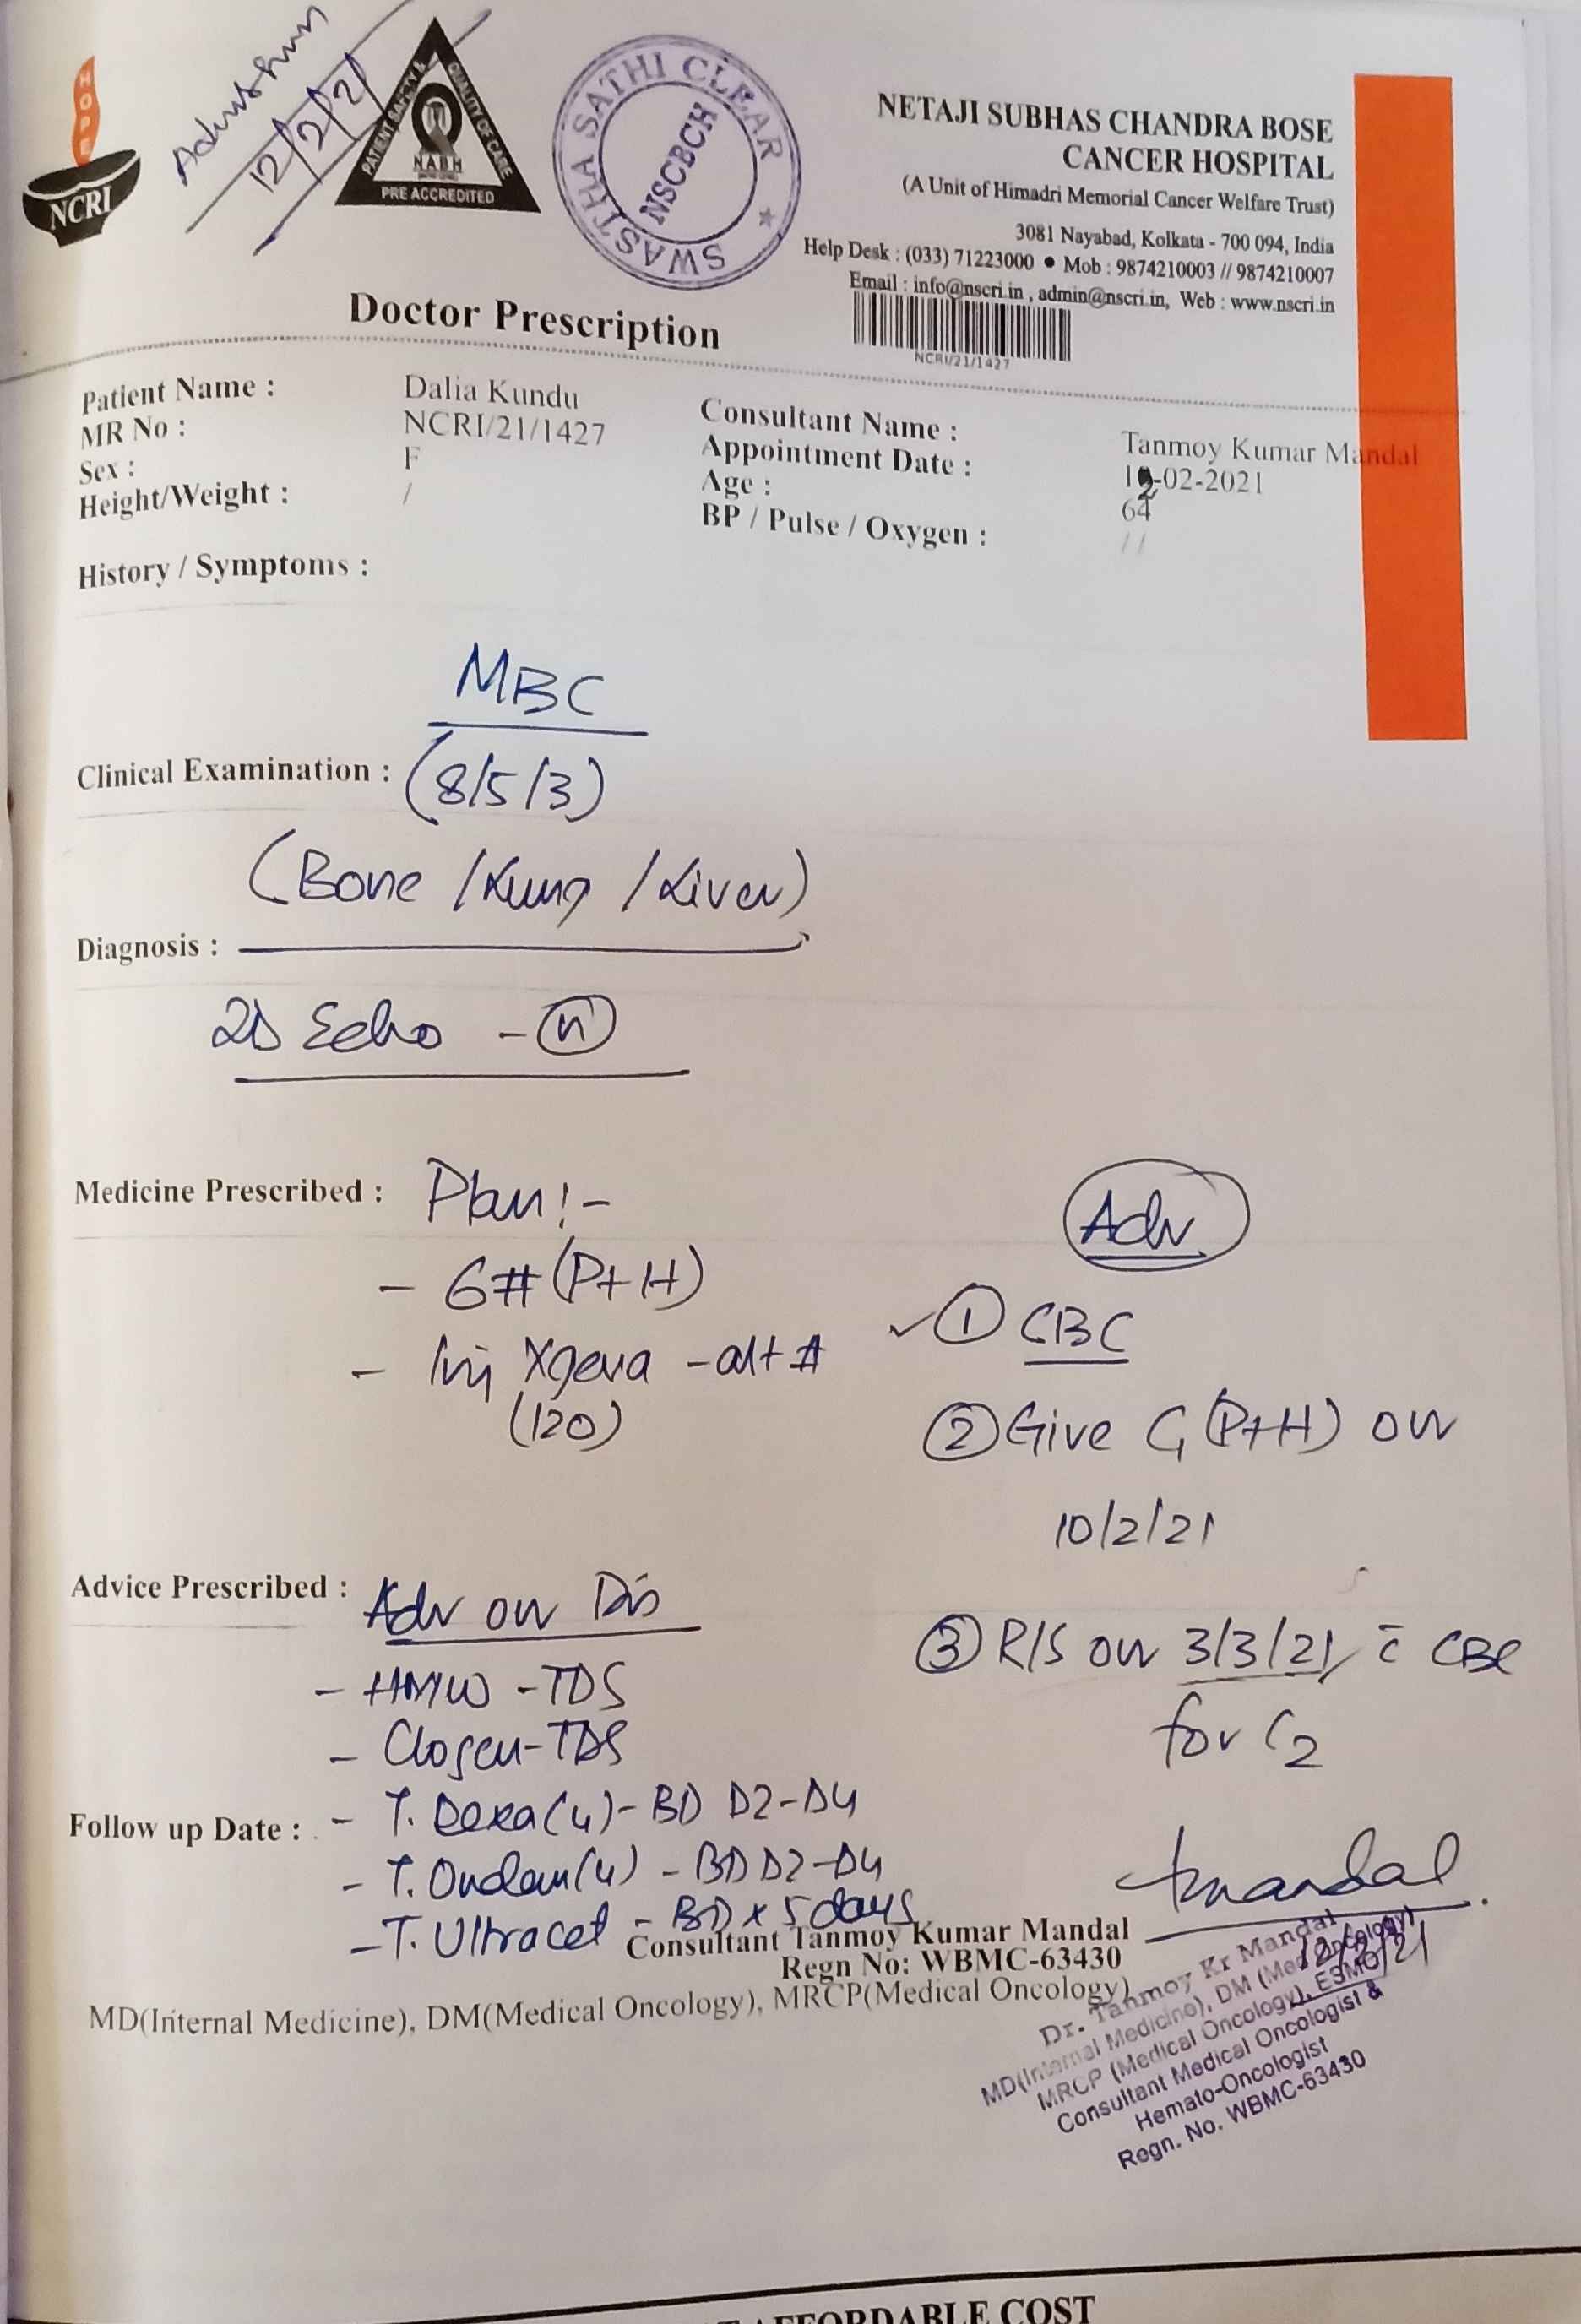 HOPE
NCRI
Admission
12/2/21
PATIENT SAFETY & QUALITY OF CARE
NABH
PRE ACCREDITED
SWASTHA SATHI CLEAR
NSCBCH
NETAJI SUBHAS CHANDRA BOSE
CANCER HOSPITAL
(A Unit of Himadri Memorial Cancer Welfare Trust)
3081 Nayabad, Kolkata - 700 094, India
Help Desk : (033) 71223000 ● Mob : 9874210003 // 9874210007
Email : info@nscri.in , admin@nscri.in, Web : www.nscri.in
NCRI/21/1427
Doctor Prescription
Patient Name : Dalia Kundu
MR No : NCRI/21/1427
Sex : F
Height/Weight : /
Consultant Name : Tanmoy Kumar Mandal
Appointment Date : 12-02-2021
Age : 64
BP / Pulse / Oxygen : / /
History / Symptoms :
MBC
Clinical Examination : (8/5/3)
(Bone / Lung / Liver)
Diagnosis :
2D Echo - (n)
Medicine Prescribed : Plan :-
- 6# (P+H)
- Inj Xgeva - alt #
(120)
Adv
① CBC
② Give C1 (P+H) on
10/2/21
③ R/S on 3/3/21 c̄ CBC
for C2
Advice Prescribed : Adv on Dis
- HMW - TDS
- TDS
Follow up Date : - T. Dexa (4) - BD D2-D4
- T. Ondem (4) - BD D2-D4
- T. Ultracet - BD x 5 days
Tmandal
12/2/21
Consultant Tanmoy Kumar Mandal
Regn No: WBMC-63430
MD(Internal Medicine), DM(Medical Oncology), MRCP(Medical Oncology)
Dr. Tanmoy Kr Mandal
MD(Internal Medicine), DM (Med Oncology)
MRCP (Medical Oncology), ESMO
Consultant Medical Oncologist &
Hemato-Oncologist
Regn. No. WBMC-63430
AFFORDABLE COST